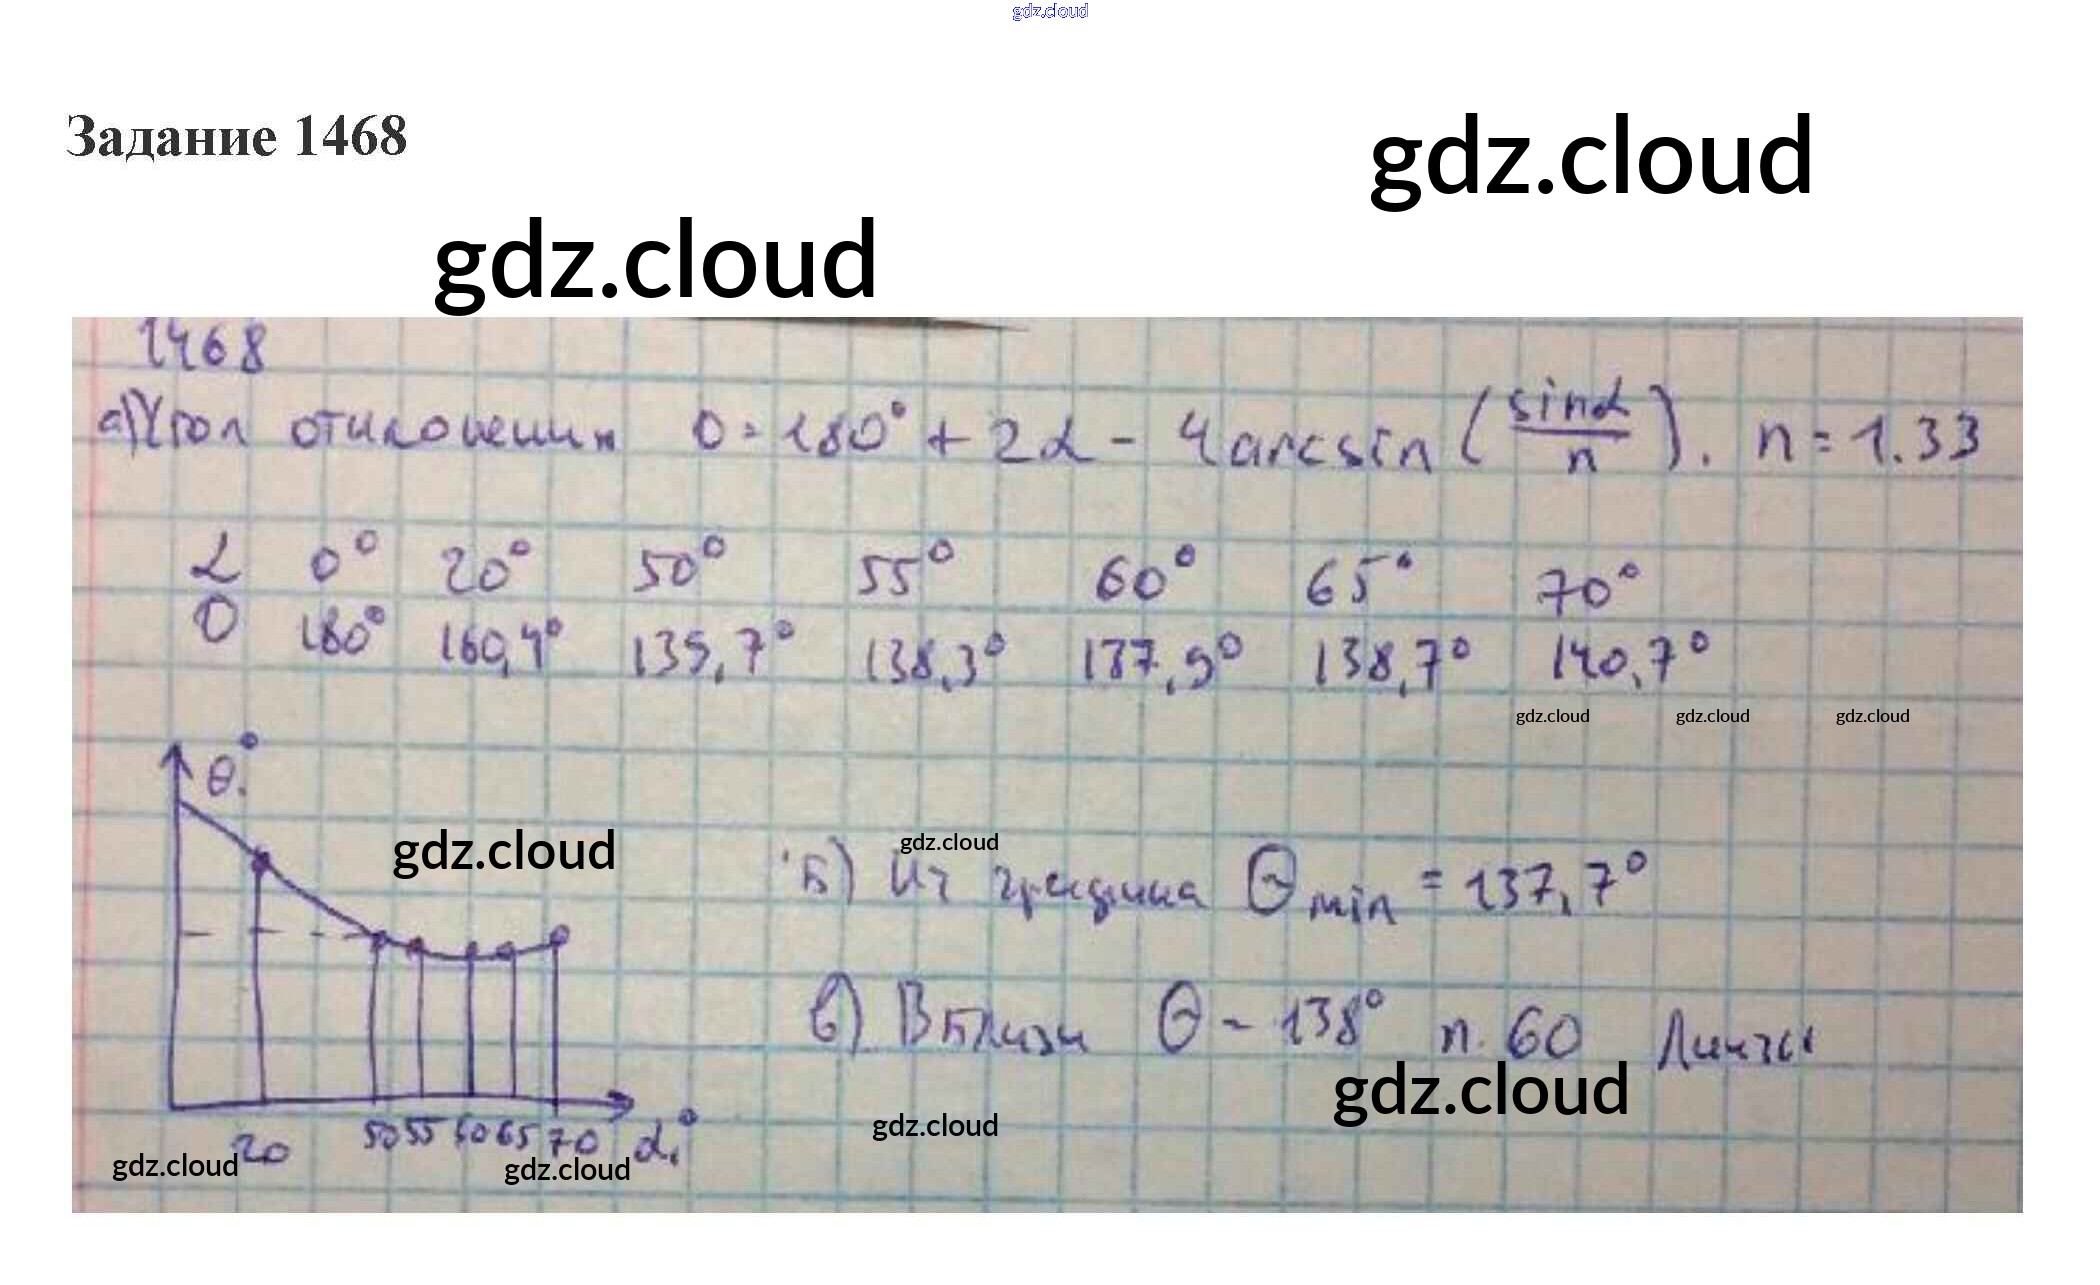 gdz.cloud
Задание 1468
gdz.cloud
gdz.cloud
1468
а) Угол отклонения θ = 180° + 2α - 4 arcsin (sinα/n). n = 1.33
α 0° 20° 50° 55° 60° 65° 70°
θ 180° 160,4° 139,7° 138,3° 137,9° 138,7° 140,7°
gdz.cloud gdz.cloud gdz.cloud
θ,°
gdz.cloud
gdz.cloud
Б) Из графика θ min = 137,7°
в) Вблизи θ = 138° n. 60 Линзы
gdz.cloud
gdz.cloud
20 50 55 60 65 70 α,°
gdz.cloud
gdz.cloud